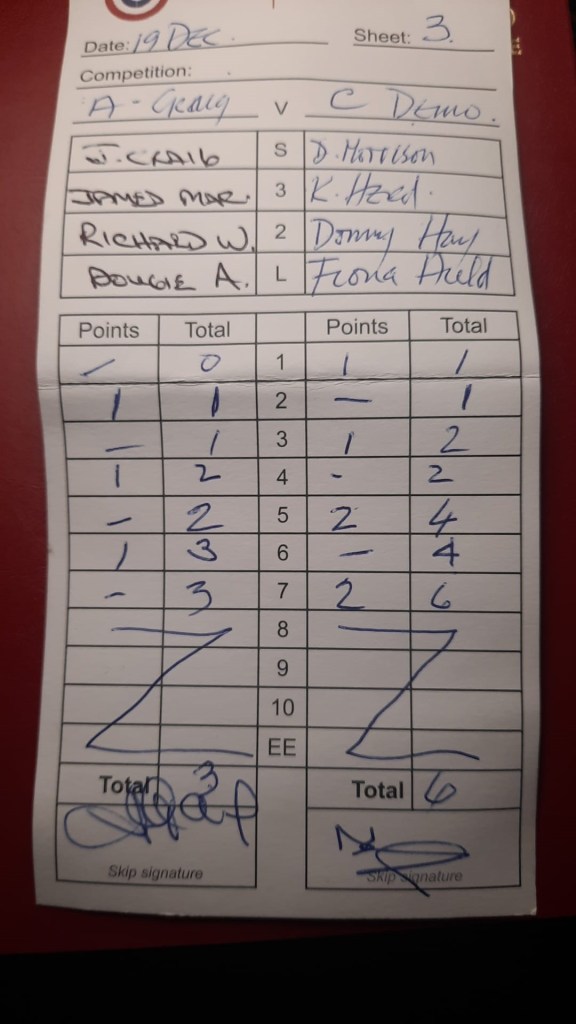 Date: 19 DEC. Sheet: 3.
Competition:
A - Craig v C Demo.
J. CRAIG S D. Morrison
JAMED MAR. 3 K. Head.
RICHARD W. 2 Donny Hay
DOUGIE A. L Fiona
Points Total Points Total
- 0 1 1 1
1 1 2 - 1
- 1 3 1 2
1 2 4 - 2
- 2 5 2 4
1 3 6 - 4
- 3 7 2 6
8
9
10
EE
Total 3 Total 6
Skip signature Skip signature